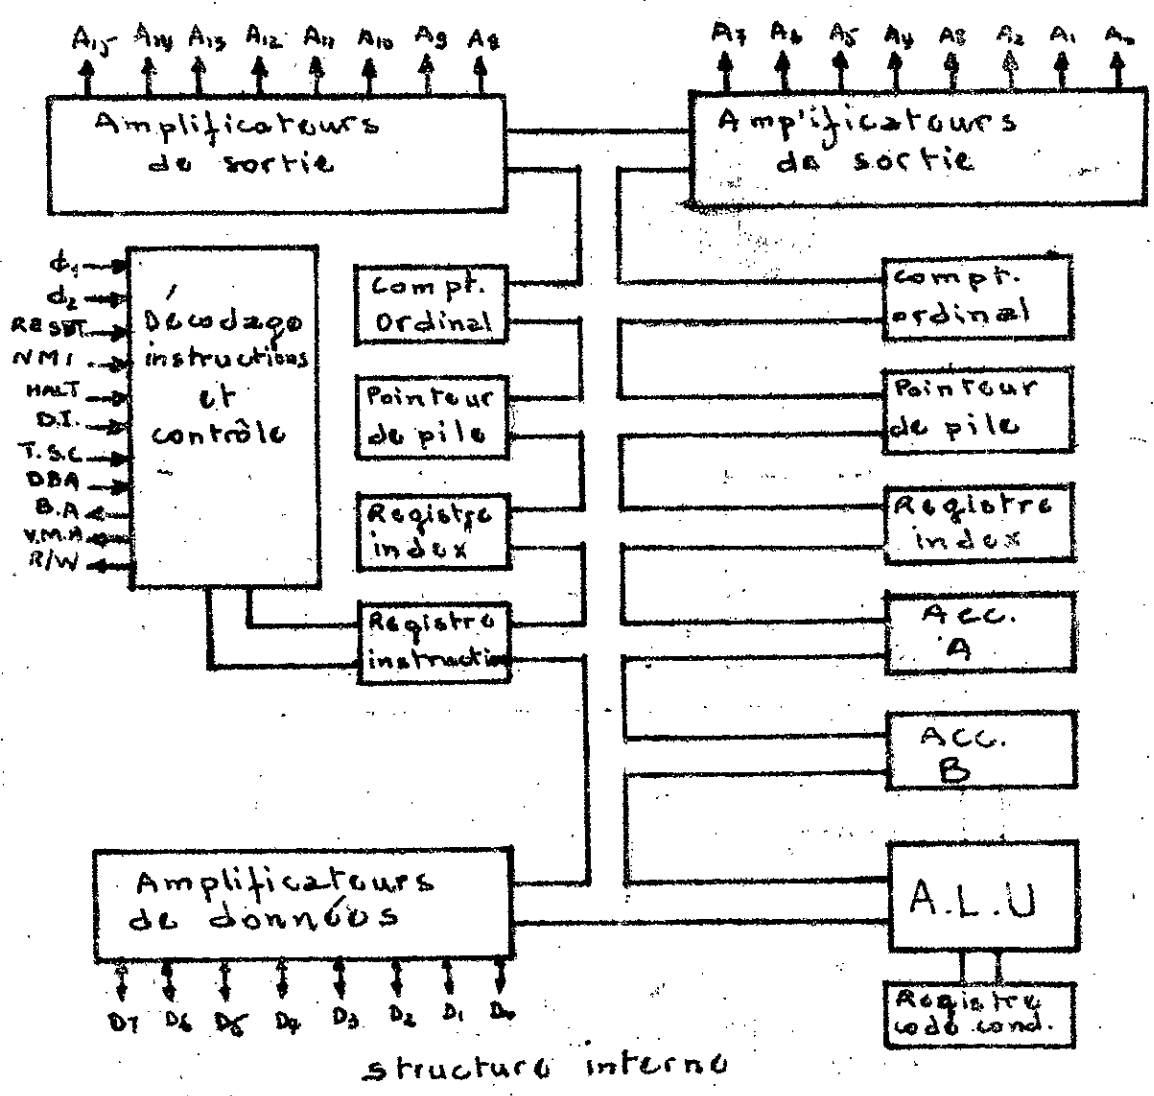 A15 A14 A13 A12 A11 A10 A9 A8
A7 A6 A5 A4 A3 A2 A1 A0
Amplificateurs
de sortie
Amplificateurs
de sortie
ϕ1
ϕ2
RESET
NMI
HALT
D.I.
T.S.C
DBA
B.A
V.M.A
R/W
Décodage
instructions
et
contrôle
Compt.
Ordinal
Pointeur
de pile
Registre
index
Registre
instruction
Compt.
ordinal
Pointeur
de pile
Registre
index
Acc.
A
Acc.
B
A.L.U
Registre
code cond.
Amplificateurs
de données
D7 D6 D5 D4 D3 D2 D1 D0
structure interne